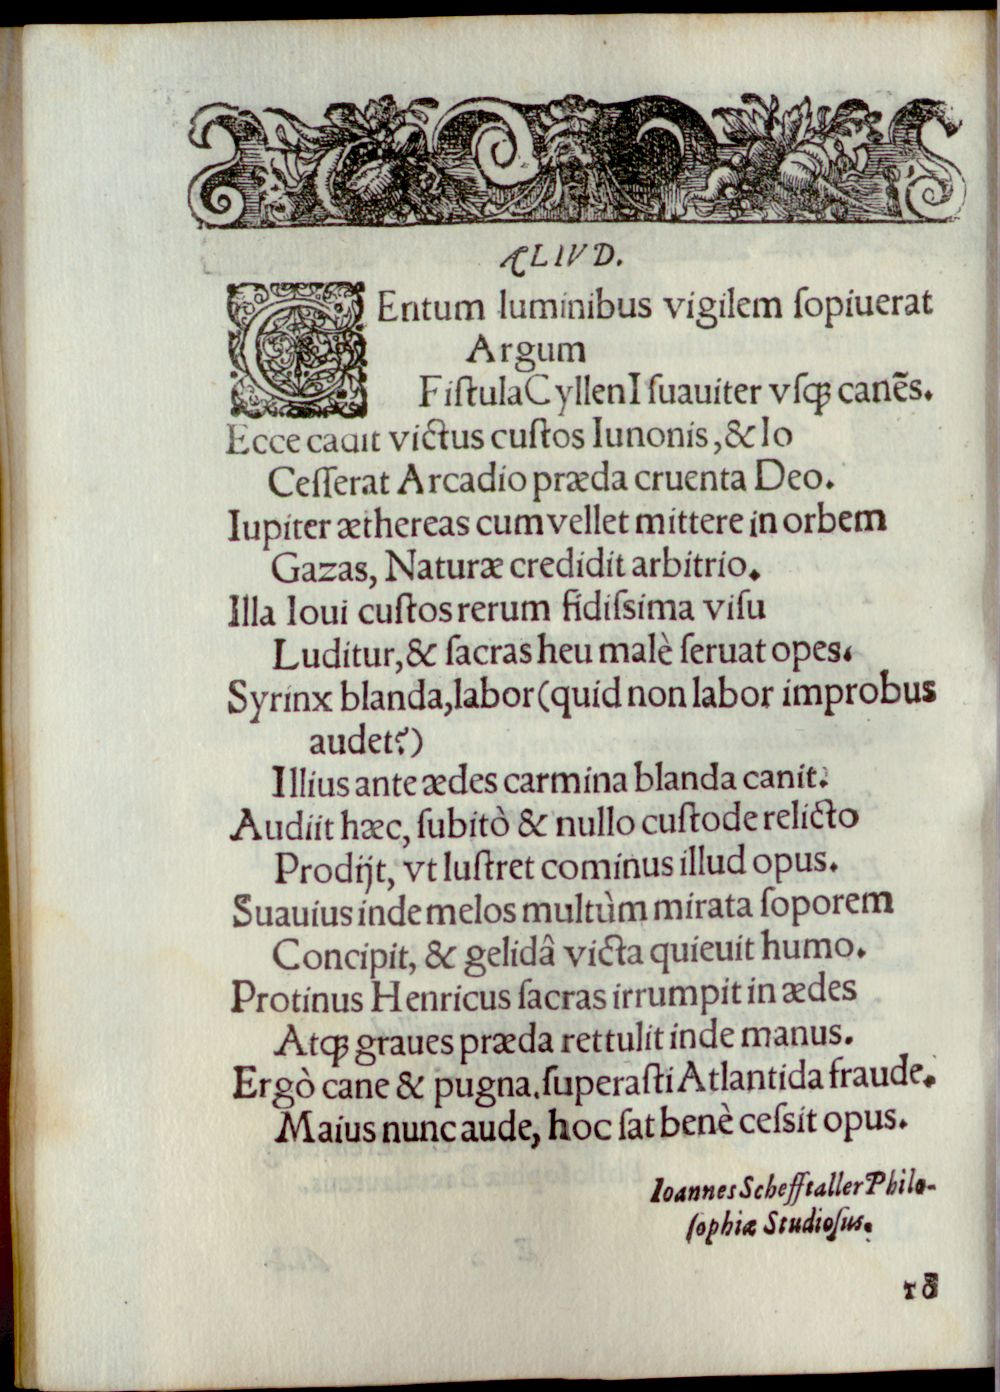 ALIVD.
CEntum luminibus vigilem ſopiuerat
Argum
FiſtulaCyllenI ſuauiter vſq; canẽs.
Ecce cadit victus cuſtos Iunonis, & Io
Ceſſerat Arcadio præda cruenta Deo.
Iupiter æthereas cum vellet mittere in orbem
Gazas, Naturæ credidit arbitrio.
Illa Ioui cuſtos rerum fidiſsima viſu
Luditur, & ſacras heu malè ſeruat opes.
Syrinx blanda, labor (quid non labor improbus
audet?)
Illius ante ædes carmina blanda canit.
Audiit hæc, ſubitò & nullo cuſtode relicto
Prodijt, vt luſtret cominus illud opus.
Suauius inde melos multùm mirata ſoporem
Concipit, & gelidâ victa quieuit humo.
Protinus Henricus ſacras irrumpit in ædes
Atq; graues præda rettulit inde manus.
Ergò cane & pugna. ſuperaſti Atlantida fraude.
Maius nunc aude, hoc ſat benè ceſsit opus.
Ioannes Schefftaller Philo-
ſophiæ Studioſus.